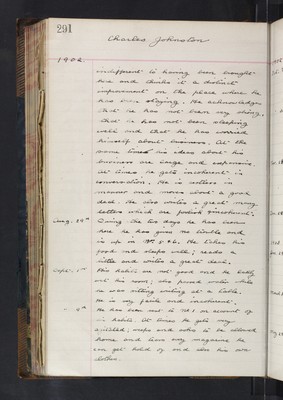 291
Charles Johnston
1902.
indifferent to having been brought
here and thinks it a distinct
improvement on the place where he
has been staying. He acknowledges
that he has not been very strong,
that he has not been sleeping
well and that he has worried
himself about business. At the
same time his ideas about his
business are large and expansive.
At times he gets incoherent in
conversation. He is restless in
manner and moves about a good
deal. He also writes a great many
letters which are foolish & incoherent.
Aug. 30th During the two days he has been
here he has given no trouble and
is up on No. 8 He takes his
food and sleeps well; reads a
little and writes a great deal.
Sept. 1st His habits are not good and he
wet his room; also passed water while
he was sitting writing at a table.
He is very facile and incoherent.
- 9th He has been sent to No 1 on account of
his habits. At times he gets very
excited; weeps and asks to be allowed
home and tears any magazine he
can get hold of and also his own
clothes.